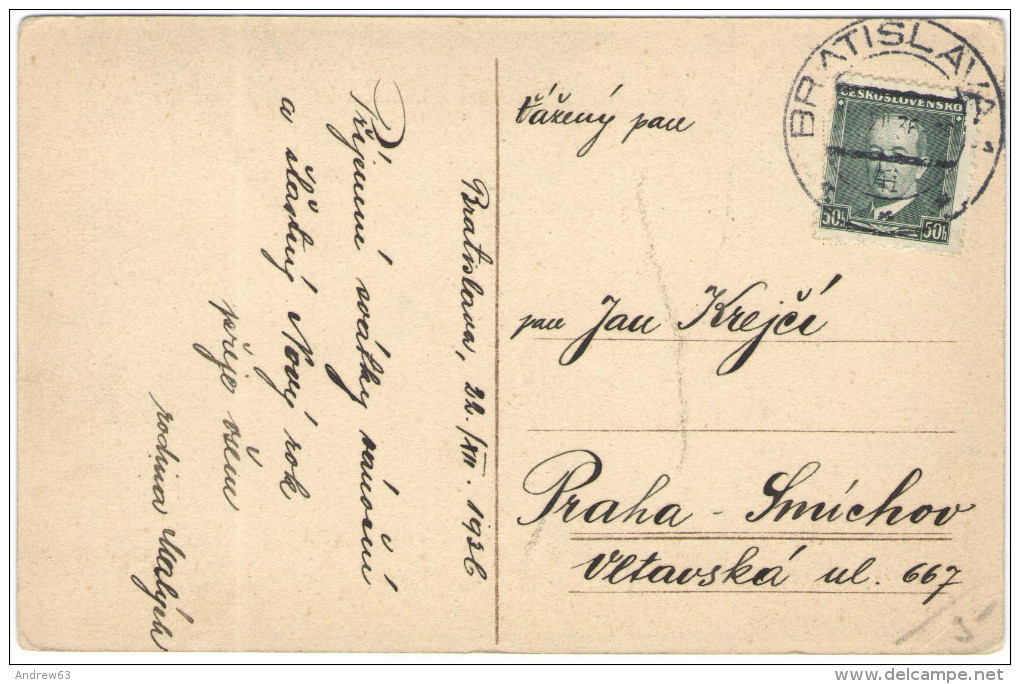 Bratislava, 22./XII. 1936
Příjemné svátky vánoční
a šťastný Nový rok
přeje všem
rodina Malých
Vážený pan
pan Jan Krejčí
Praha - Smíchov
Vltavská ul. 667
BRATISLAVA 1
ČESKOSLOVENSKO
50h 50h
Andrew63
www.delcampe.net